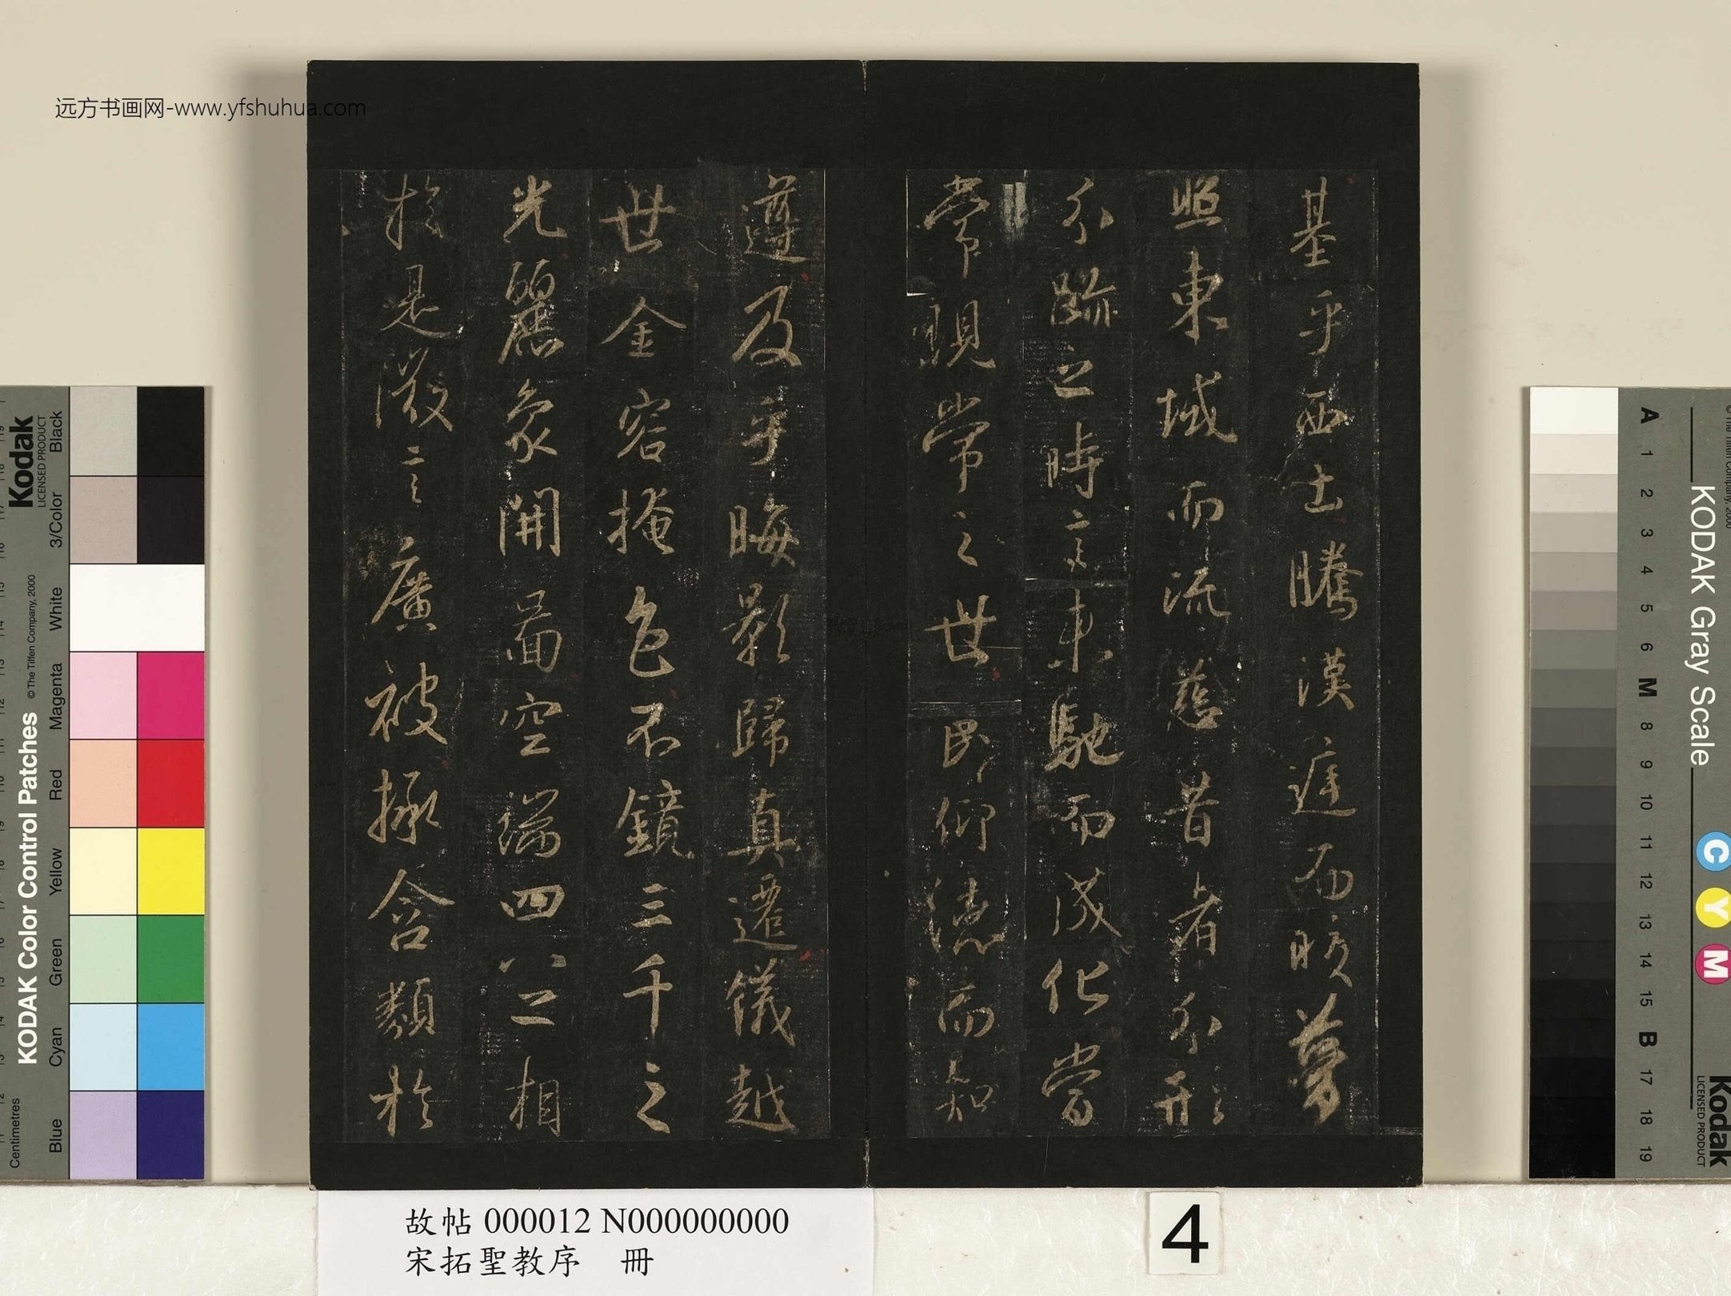 远方书画网-www.yfshuhua.com
基乎西土騰漢庭而皎夢
照東域而流慈昔者分形
分跡之時言未馳而成化當
常現常之世民仰德而知
遵及乎晦影歸真遷儀越
世金容掩色不鏡三千之
光麗象開圖空端四八之相
於是微言廣被拯含類於
故帖 000012 N000000000
宋拓聖教序 冊
4
KODAK Color Control Patches
© The Tiffen Company, 2000
Kodak
LICENSED PRODUCT
Centimetres
Blue
Cyan
Green
Yellow
Red
Magenta
White
3/Color
Black
KODAK Gray Scale
C
Y
M
Kodak
LICENSED PRODUCT
A 1 2 3 4 5 6 M 8 9 10 11 12 13 14 15 B 17 18 19